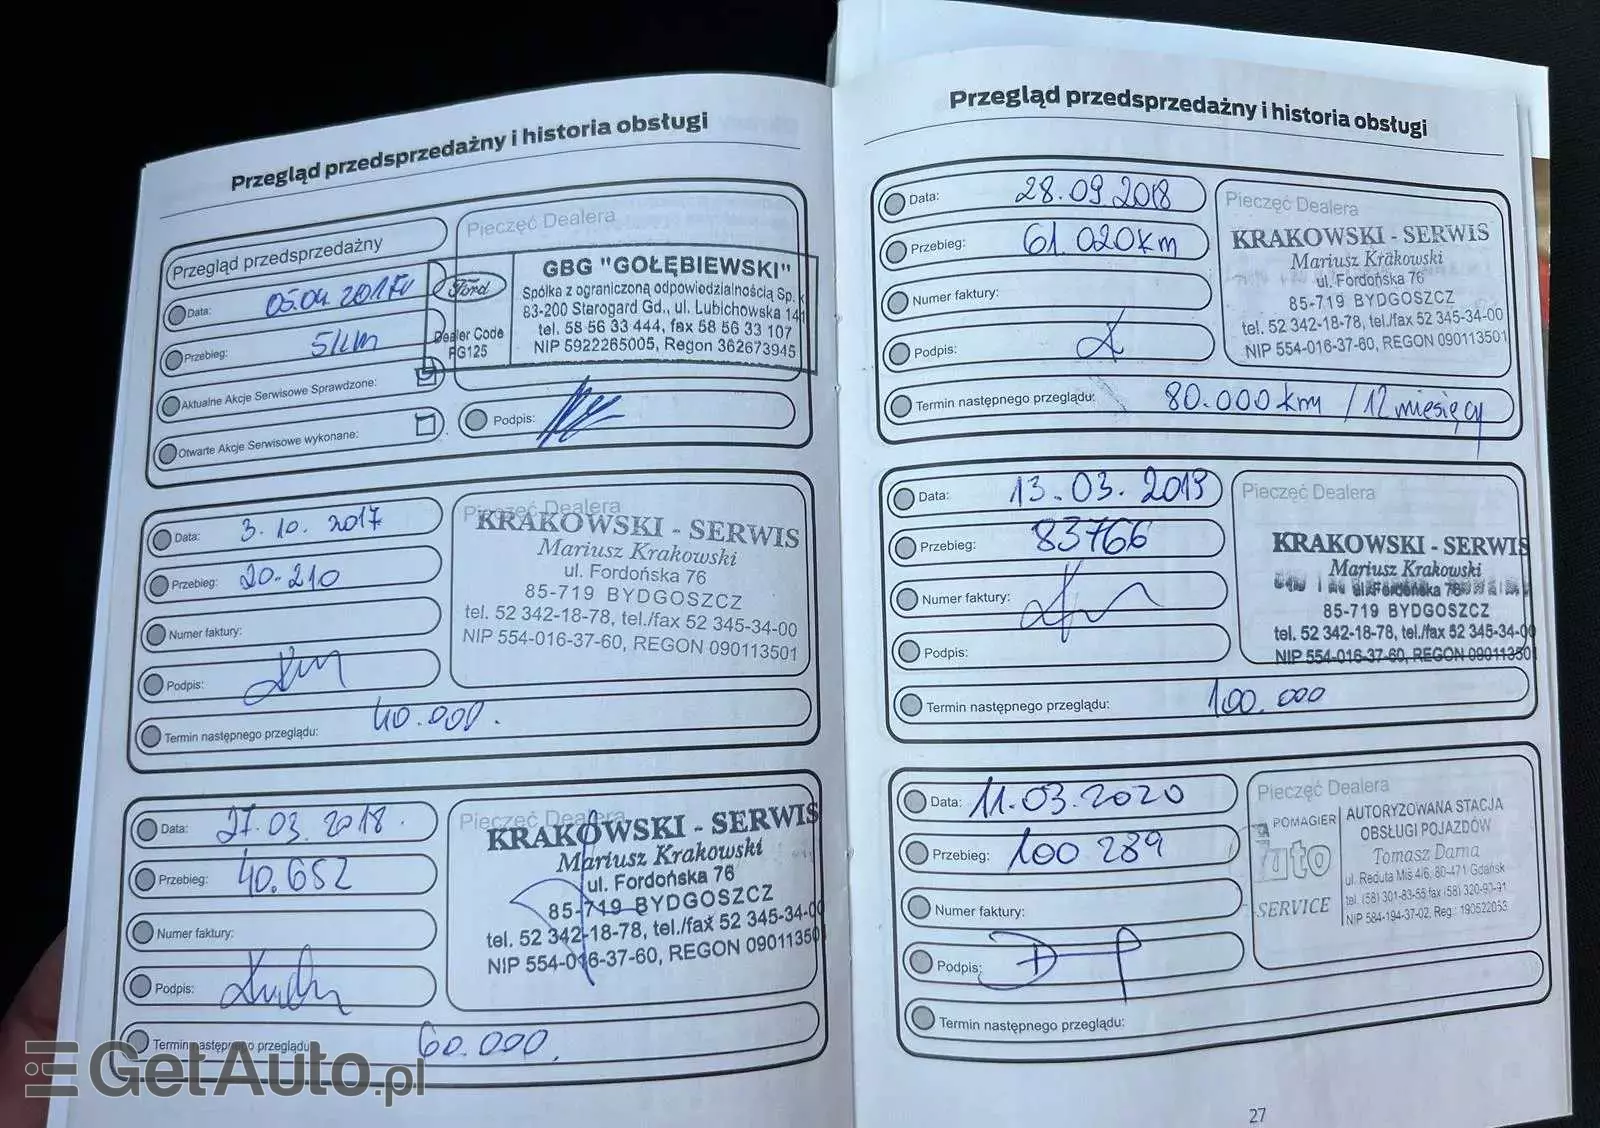 Przegląd przedsprzedażny i historia obsługi
Przegląd przedsprzedażny
Data: 05.04 2017r
Przebieg: 5km
Aktualne Akcje Serwisowe Sprawdzone:
Otwarte Akcje Serwisowe wykonane:
Pieczęć Dealera
Ford
Dealer Code
PG125
GBG "GOŁĘBIEWSKI"
Spółka z ograniczoną odpowiedzialnością Sp. k
83-200 Starogard Gd., ul. Lubichowska 141
tel. 58 56 33 444, fax 58 56 33 107
NIP 5922265005, Regon 362673945
Podpis:
Data: 3.10.2017
Przebieg: 20-210
Numer faktury:
Podpis:
Termin następnego przeglądu: 40.000.
Pieczęć Dealera
KRAKOWSKI - SERWIS
Mariusz Krakowski
ul. Fordońska 76
85-719 BYDGOSZCZ
tel. 52 342-18-78, tel./fax 52 345-34-00
NIP 554-016-37-60, REGON 090113501
Data: 27.03.2018.
Przebieg: 40.652
Numer faktury:
Podpis:
Termin następnego przeglądu: 60.000.
Pieczęć Dealera
KRAKOWSKI - SERWIS
Mariusz Krakowski
ul. Fordońska 76
85-719 BYDGOSZCZ
tel. 52 342-18-78, tel./fax 52 345-34-00
NIP 554-016-37-60, REGON 09011350
Przegląd przedsprzedażny i historia obsługi
Data: 28.09.2018
Przebieg: 61.020km
Numer faktury:
Podpis:
Termin następnego przeglądu: 80.000km /12 miesięcy
Pieczęć Dealera
KRAKOWSKI - SERWIS
Mariusz Krakowski
ul. Fordońska 76
85-719 BYDGOSZCZ
tel. 52 342-18-78, tel./fax 52 345-34-00
NIP 554-016-37-60, REGON 090113501
Data: 13.03.2019
Przebieg: 83766
Numer faktury:
Podpis:
Termin następnego przeglądu: 100.000
Pieczęć Dealera
KRAKOWSKI - SERWIS
Mariusz Krakowski
ul. Fordońska 76
85-719 BYDGOSZCZ
tel. 52 342-18-78, tel./fax 52 345-34-00
NIP 554-016-37-60, REGON 090113501
Data: 11.03.2020
Przebieg: 100 289
Numer faktury:
Podpis:
Termin następnego przeglądu:
Pieczęć Dealera
POMAGIER
auto
SERVICE
AUTORYZOWANA STACJA
OBSŁUGI POJAZDÓW
Tomasz Dama
ul. Reduta Miś 4/6, 80-471 Gdańsk
tel. (58) 301-83-55 fax (58) 320-90-91
NIP 584-194-37-02, Reg.: 190522053
27
GetAuto.pl